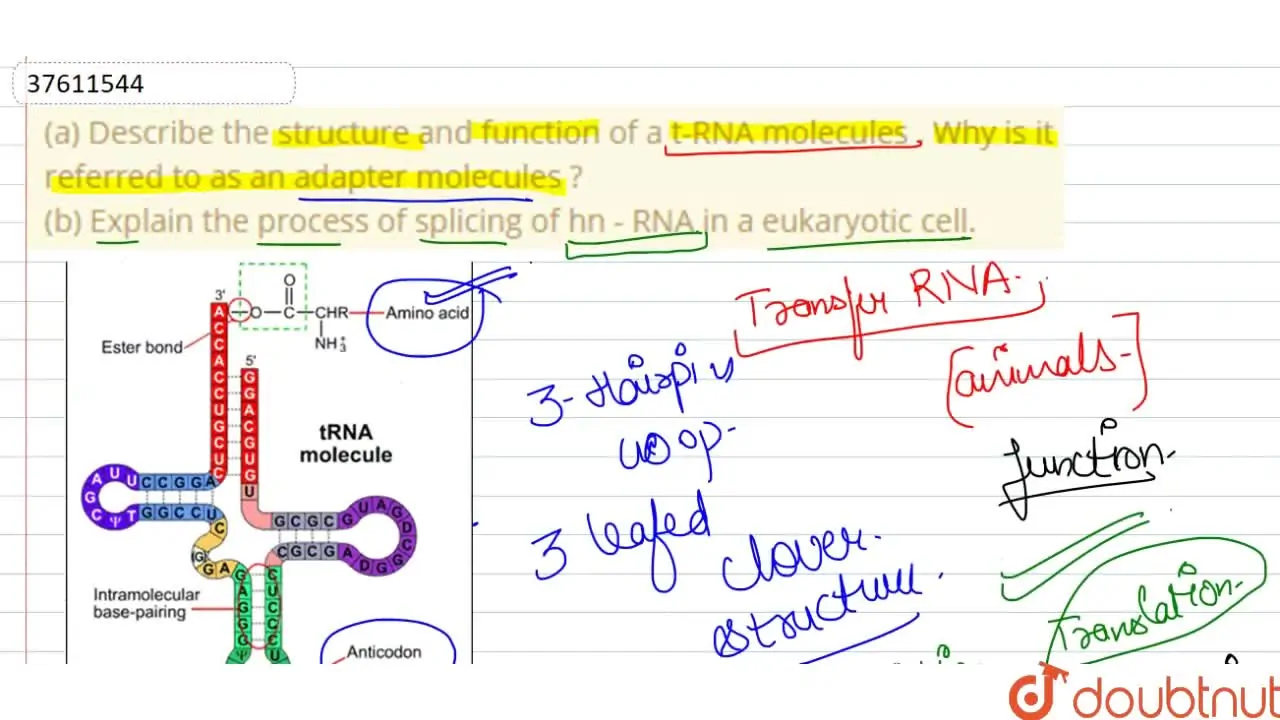 37611544
(a) Describe the structure and function of a t-RNA molecules . Why is it
referred to as an adapter molecules ?
(b) Explain the process of splicing of hn - RNA in a eukaryotic cell.
3'
O
A O C CHR Amino acid
NH3+
Ester bond
5'
C
C
A
C
C
U
G
C
U
C
G
G
A
C
G
U
G
U
tRNA
molecule
Transfer RNA.
[animals-]
3- Hairpin
loop-
function.
3 leafed
clover.
structure.
Translation.
A U U C C G G A
G
C Ψ T G G C C U C
G
G A G
G C G C G U A G D C G G D A G C G C
Intramolecular
base-pairing
A
G
G
G
Ψ
C
U
C
C
C
U
Anticodon
doubtnut